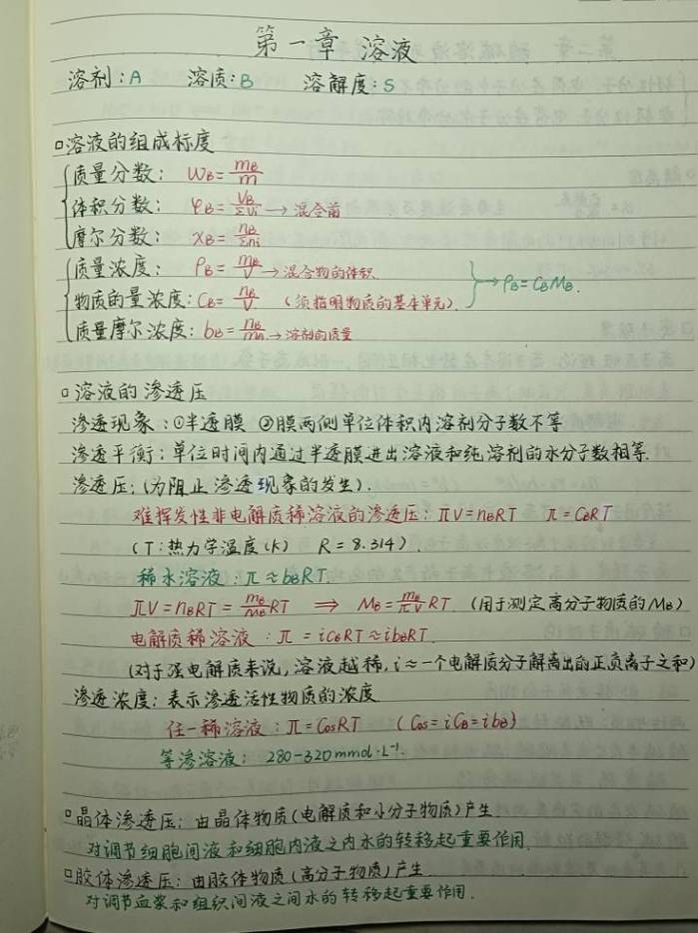 第一章 溶液
溶剂:A 溶质:B 溶解度:S
□溶液的组成标度
质量分数: ωB=mB/m
体积分数: φB=VB/ΣVi→混合前
摩尔分数: xB=nB/Σni
质量浓度: ρB=mB/V→混合物的体积
物质的量浓度:CB=nB/V (须指明物质的基本单元). →ρB=CBMB.
质量摩尔浓度:bB=nB/mA→溶剂的质量
□溶液的渗透压
渗透现象:①半透膜 ②膜两侧单位体积内溶剂分子数不等
渗透平衡:单位时间内通过半透膜进出溶液和纯溶剂的水分子数相等.
渗透压:(为阻止渗透现象的发生).
难挥发性非电解质稀溶液的渗透压:πV=nBRT π=CBRT
(T:热力学温度(K) R=8.314).
稀水溶液:π≈bBRT.
πV=nBRT=mB/MB RT ⇒ MB=mB/πV RT.(用于测定高分子物质的MB)
电解质稀溶液:π=iCBRT≈ibBRT.
(对于强电解质来说,溶液越稀,i≈一个电解质分子解离出的正负离子之和)
渗透浓度:表示渗透活性物质的浓度
任一稀溶液:π=CosRT (Cos=iCB=ibB)
等渗溶液: 280-320mmol·L⁻¹.
□晶体渗透压:由晶体物质(电解质和小分子物质)产生.
对调节细胞间液和细胞内液之内水的转移起重要作用.
□胶体渗透压:由胶体物质(高分子物质)产生.
对调节血浆和组织间液之间水的转移起重要作用.